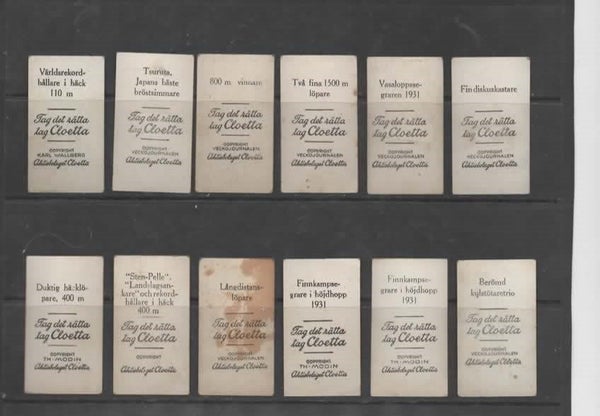 Världarekord-
hållare i häck
110 m
Tag det rätta
tag Cloetta
COPYRIGHT
KARL WALLBERG
Aktiebolaget Cloetta
Tsuruta,
Japans bäste
bröstsimmare
Tag det rätta
tag Cloetta
COPYRIGHT
VECKOJOURNALEN
Aktiebolaget Cloetta
800 m vinnare
Tag det rätta
tag Cloetta
COPYRIGHT
VECKOJOURNALEN
Aktiebolaget Cloetta
Två fina 1500 m
löpare
Tag det rätta
tag Cloetta
COPYRIGHT
VECKOJOURNALEN
Aktiebolaget Cloetta
Vasaloppsse-
graren 1931
Tag det rätta
tag Cloetta
COPYRIGHT
VECKOJOURNALEN
Aktiebolaget Cloetta
Fin diskuskastare
Tag det rätta
tag Cloetta
COPYRIGHT
VECKOJOURNALEN
Aktiebolaget Cloetta
Duktig häcklö-
pare, 400 m
Tag det rätta
tag Cloetta
COPYRIGHT
TH. MODIN
Aktiebolaget Cloetta
"Sten-Pelle",
"Landslagsan-
kare" och rekord-
hållare i häck
400 m
Tag det rätta
tag Cloetta
COPYRIGHT
TH. MODIN
Aktiebolaget Cloetta
Långdistans-
löpare
Tag det rätta
tag Cloetta
COPYRIGHT
VECKOJOURNALEN
Aktiebolaget Cloetta
Finnkampse-
grare i höjdhopp
1931
Tag det rätta
tag Cloetta
COPYRIGHT
TH. MODIN
Aktiebolaget Cloetta
Finnkampse-
grare i höjdhopp
1931
Tag det rätta
tag Cloetta
COPYRIGHT
TH. MODIN
Aktiebolaget Cloetta
Berömd
kulstötaretrio
Tag det rätta
tag Cloetta
COPYRIGHT
VECKOJOURNALEN
Aktiebolaget Cloetta